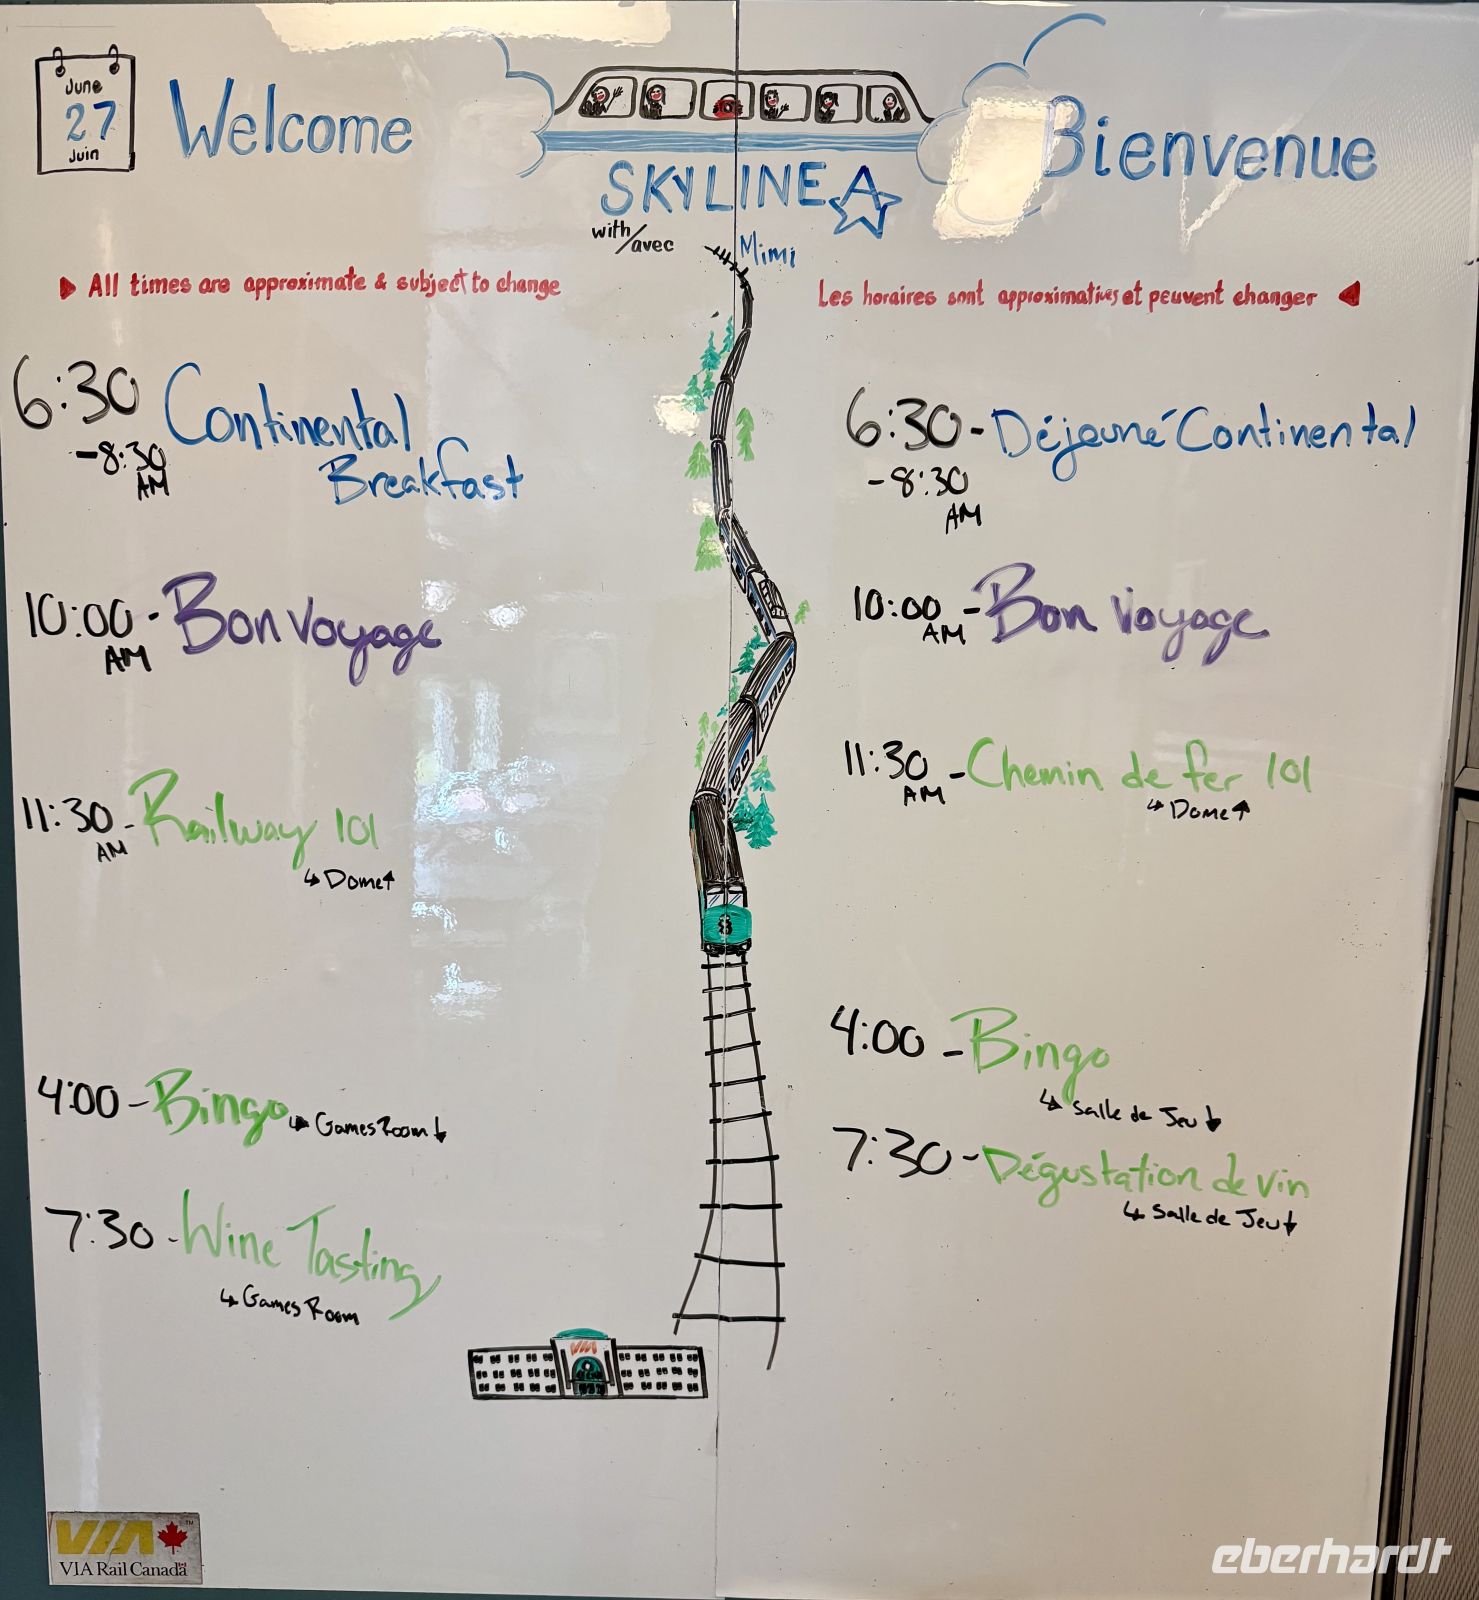 June
27
Juin
Welcome
Bienvenue
SKYLINE A
with/avec Mimi
All times are approximate & subject to change
6:30 Continental
-8:30 Breakfast
AM
10:00 - Bon Voyage
AM
11:30 - Railway 101
AM
↳ Dome↑
4:00 - Bingo
↳ Games Room ↓
7:30 - Wine Tasting
↳ Games Room
Les horaires sont approximatives et peuvent changer
6:30 - Déjeuné Continental
-8:30
AM
10:00 - Bon Voyage
AM
11:30 - Chemin de fer 101
AM
↳ Dome↑
4:00 - Bingo
↳ Salle de Jeu ↓
7:30 - Dégustation de vin
↳ Salle de Jeu ↓
VIA
VIA
VIA Rail Canada
eberhardt